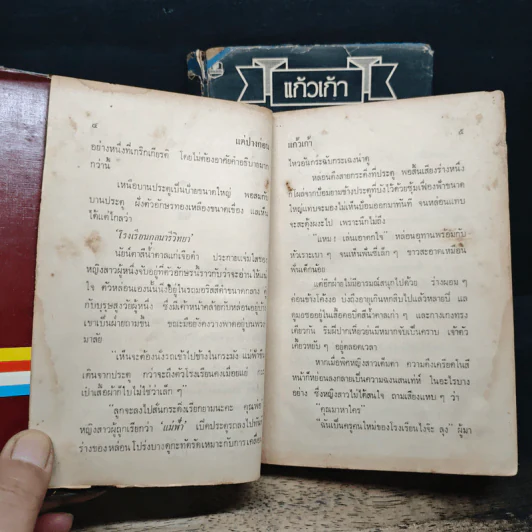 แก้วเก้า
๔
แต่ปางก่อน
อย่างหนึ่งที่เกริกเกียรติ โดยไม่ต้องอาศัยคำอธิบายมาก
กว่านี้
เหนือบานประตูเป็นป้ายขนาดใหญ่ พอสมกับ
บานประตู มีตัวอักษรทองเหลืองขนาดเขื่อง แลเห็น
ได้แต่ไกลว่า
'โรงเรียนกุมารีวิทยา'
นัยน์ตาสีน้ำตาลแก่เจือดำ ประกายแจ่มใสของ
หญิงสาวผู้หนึ่งจับอยู่ที่ตัวอักษรนี้ราวกับว่าจะอ่านให้แน่
ใจ ตัวหล่อนเองนั้นนั่งอยู่ในรถมอริสสีดำขนาดกลาง
กับบุรุษสูงวัยผู้หนึ่ง ซึ่งมีเค้าหน้าคล้ายกับหล่อนอยู่บ้าง
เขาเป็นฝ่ายถามขึ้น ขณะมองตรงวางพาดอยู่บนพวง
มาลัย
"เห็นจะต้องนั่งรถเข้าไปข้างในกระมัง แม่ฟ้าขืน
เดินจากประตู กว่าจะถึงตัวโรงเรียนคงเมื่อยแย่
เป๋าเสื้อผ้าก็ใบไม่ใช่ว่าเล็ก ๆ"
"ลูกจะลงไปสั่นกระดิ่งเรียกยามนะคะ คุณพ่อ"
หญิงสาวผู้ถูกเรียกว่า 'แม่ฟ้า' เปิดประตูรถลงไปทันที
ร่างของหล่อนโปร่งบางดูกะทัดรัดเหมาะกับการเคลื่อน
แก้วเก้า
๕
ไหวอันกระฉับกระเฉงน่าดู
หล่อนดึงสายกระดิ่งที่ประตู พอสิ้นเสียงร่างหนึ่ง
ก็โผล่จากป้อมยามข้างประตูที่บังไว้ด้วยซุ้มเฟื่องฟ้าขนาด
ใหญ่แทบจะมองไม่เห็นป้อมออกมาทันที จนหล่อนแทบ
จะสะดุ้งผงะไป เพราะนึกไม่ถึง
"แหม! เล่นเอาตกใจ" หล่อนอุทานพร้อมกับ
หัวเราะเบา ๆ จนเห็นฟันซี่เล็ก ๆ ขาวสะอาดเหมือน
ฟันเด็กน้อย
แต่อีกฝ่ายไม่มีอารมณ์สนุกไปด้วย ร่างผอม ๆ
ค่อนข้างโค้งงอ บ่งถึงอายุเกินหกสิบไปแล้วหลายปี แล
ดูมอซออยู่ในเสื้อคอปิดสีน้ำตาลเก่า ๆ และกางเกงทรง
เดียวกัน ริมฝีปากเหี่ยวย่นมีหมากจับเป็นคราบ เจ้าตัว
เคี้ยวหยับ ๆ อยู่ตลอดเวลา
หากเมื่อพิศหญิงสาวเต็มตา ความตึงเครียดในสี
หน้าก็หย่อนลงกลายเป็นความฉงนสนเท่ห์ ในอะไรบาง
อย่าง ซึ่งหญิงสาวไม่ได้สนใจ ถามเสียงแหบ ๆ ว่า
"คุณมาหาใคร"
"ฉันเป็นครูคนใหม่ของโรงเรียนไงจ๊ะ ลุง" ผู้มา